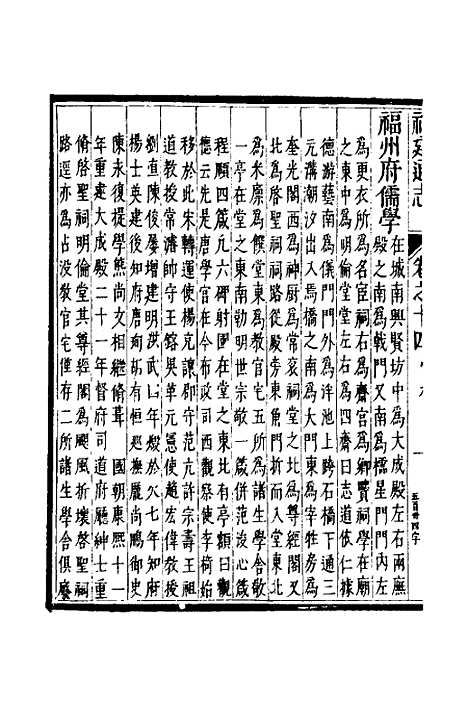 福建通志
卷之十四
五百卅四字
福州府儒學
在城南興賢坊中為大成殿左右兩廡
殿之南為戟門又南為櫺星門門內左
為更衣所為名宦祠右為齋宮為鄉賢祠學在廟
之東中為明倫堂堂左右為四齋曰志道依仁據
德游藝南為儀門門外為泮池上跨石橋下通三
元溝潮汐出入焉橋之南為大門東為宰牲房為
奎光閣西為神厨為常衮祠堂之北為尊經閣又
北為啓聖祠祠路從殿旁東角門折而入堂東北
為米廪為饌堂東為教官宅五所為諸生學舍敬
一亭在堂之東南勒明世宗敬一箴併范浚心箴
程頤四箴凡六碑射圃在堂之東北有亭額曰觀
德云先是唐學官在今布政司西觀察使李椅始
移於此宋轉運使楊克讓郡守范亢許宗壽王祖
道教授常濬帥守王鎔吳革元憲使趙宏偉教授
劉直陳俊屢增建明洪武八年殿於火七年知府
揚士英建後知府唐珣胡有恒巡撫龐尚鵬御史
陳永復提學熊尚文相繼修葺　國朝康熙十一
年重建大成殿二十一年督府司道府廳紳士重
脩啓聖祠明倫堂其尊經閣為颶風折壞啓聖祠
路逕亦為占没教官宅僅存二所諸生學舍俱廢